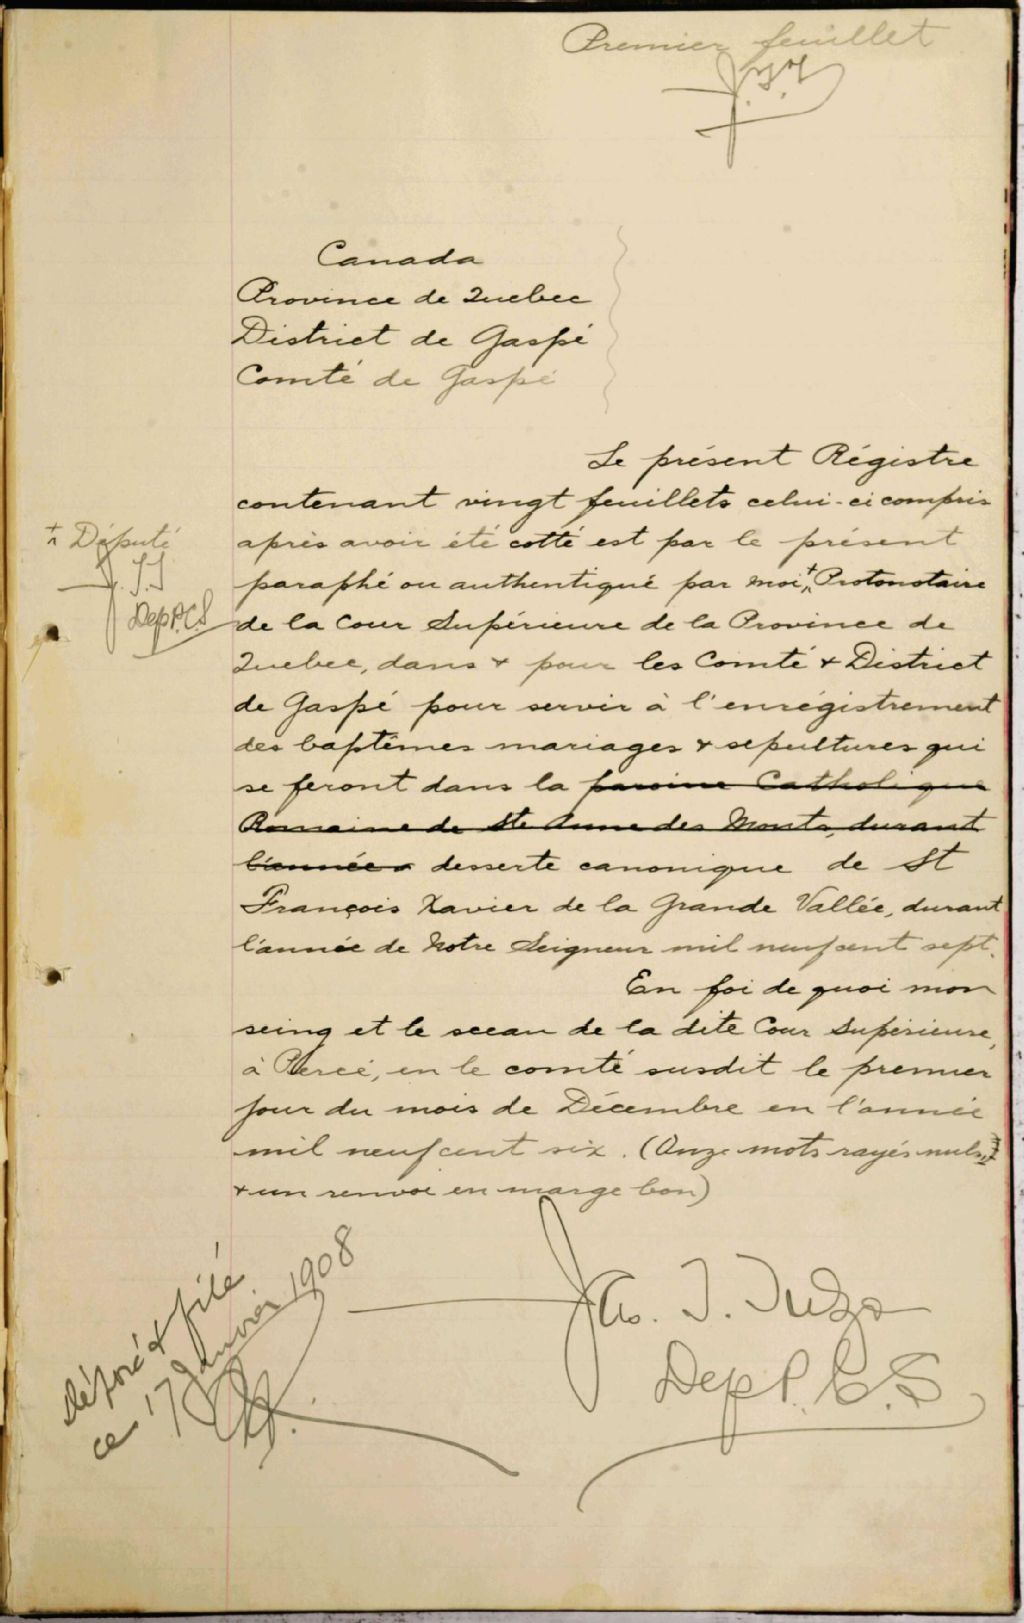 Premier feuillet
J.T.T
Canada
Province de Quebec
District de Gaspé
Comté de Gaspé
Le présent Régistre
contenant vingt feuillets celui-ci compris
après avoir été cotté est par le présent
paraphé ou authentiqué par moi + Protonotaire
+ Député
J.T.T
Dep P.C.S
de la Cour Supérieure de la Province de
Quebec, dans + pour les Comté + District
de Gaspé pour servir à l'enrégistrement
des baptêmes mariages + sepultures qui
se feront dans la paroisse Catholique
Romaine de Ste Anne des Monts, durant
l'année desserte canonique de St
François Xavier de la Grande Vallée, durant
l'année de Notre Seigneur mil neuf cent sept.
En foi de quoi mon
seing et le sceau de la dite Cour Supérieure,
à Percé, en le comté susdit le premier
jour du mois de Décembre en l'année
mil neuf cent six. (Onze mots rayés nuls
+ un renvoi en marge bon)
Jas. T. Tuzo
Dep P.C.S
Déposé + filé
ce 17 Janvier 1908